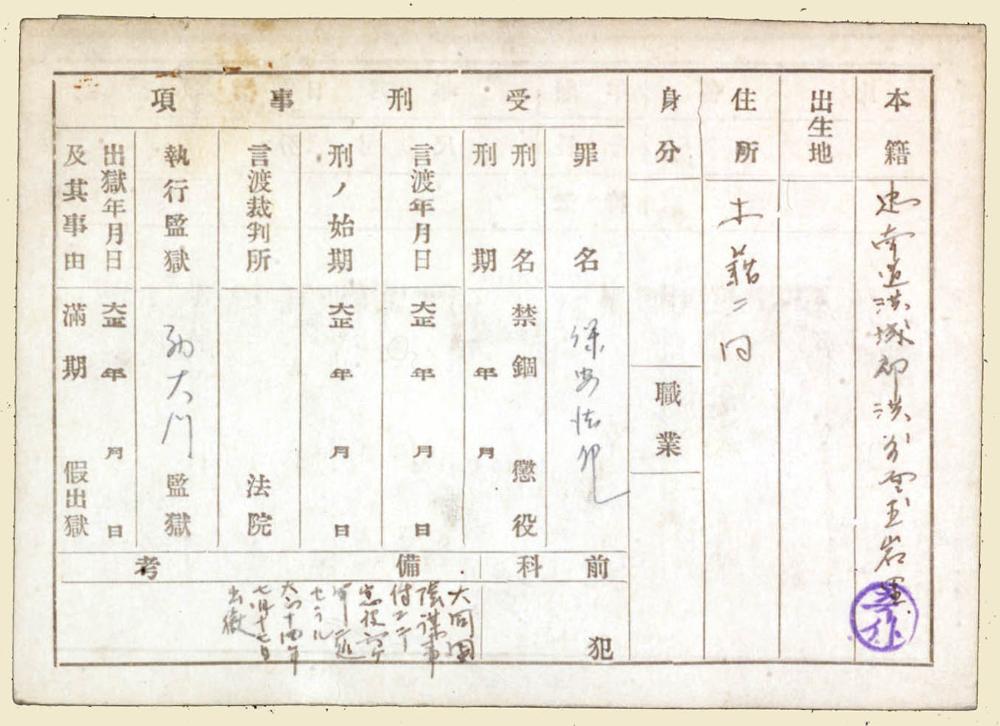 本籍
忠南道洪城郡洪
出生地
住所
本籍ニ同
身分
職業
受刑事項
罪名
保安法
刑名 禁錮 懲役
刑期 年 月
言渡年月日 大正 年 月 日
刑ノ始期 大正 年 月 日
言渡裁判所 法院
執行監獄 西大門監獄
出獄年月日 大正 年 月 日
及其事由 滿期 假出獄
前科
犯
備考
大同団
陰謀事
件ニテ
懲役六年
大正十四年
七月十七日
出獄